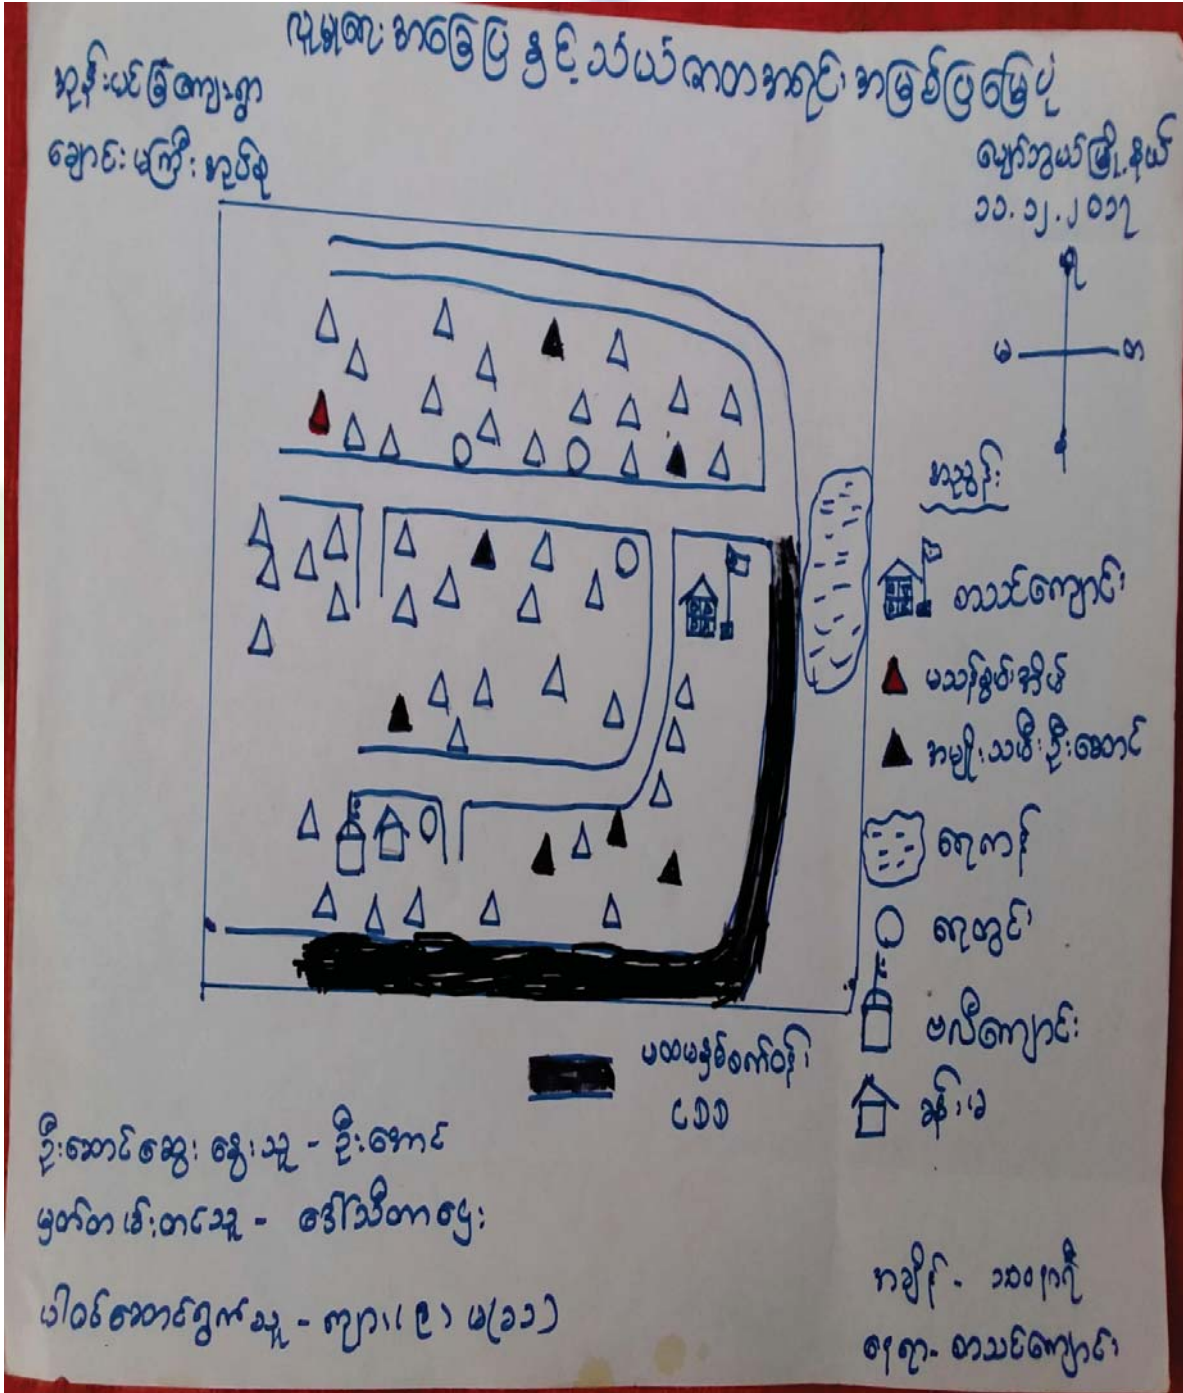 လူမှုရေးအခြေပြနှင့်သယံဇာတအရင်းအမြစ်ပြမြေပုံ
အုန်းပင်ခြံကျေးရွာ
ချောင်းမကြီးအုပ်စု
ပျော်ဘွယ်မြို့နယ်
၁၁.၁၂.၂၀၁၇
မ
တ
အညွှန်း
စာသင်ကျောင်း
မသန်စွမ်းအိမ်
အမျိုးသမီးဦးဆောင်
ရေကန်
ရေတွင်း
ဗလီကျောင်း
ပထမနှစ်စက်ဝန်း
CDD
ဦးဆောင်ဆွေးနွေးသူ - ဦးအောင်
မှတ်တမ်းတင်သူ - ဒေါ်သီတာဌေး
ပါဝင်ဆောင်ရွက်သူ - ကျား(၉) မ(၁၁)
အချိန် -
နေရာ - စာသင်ကျောင်း